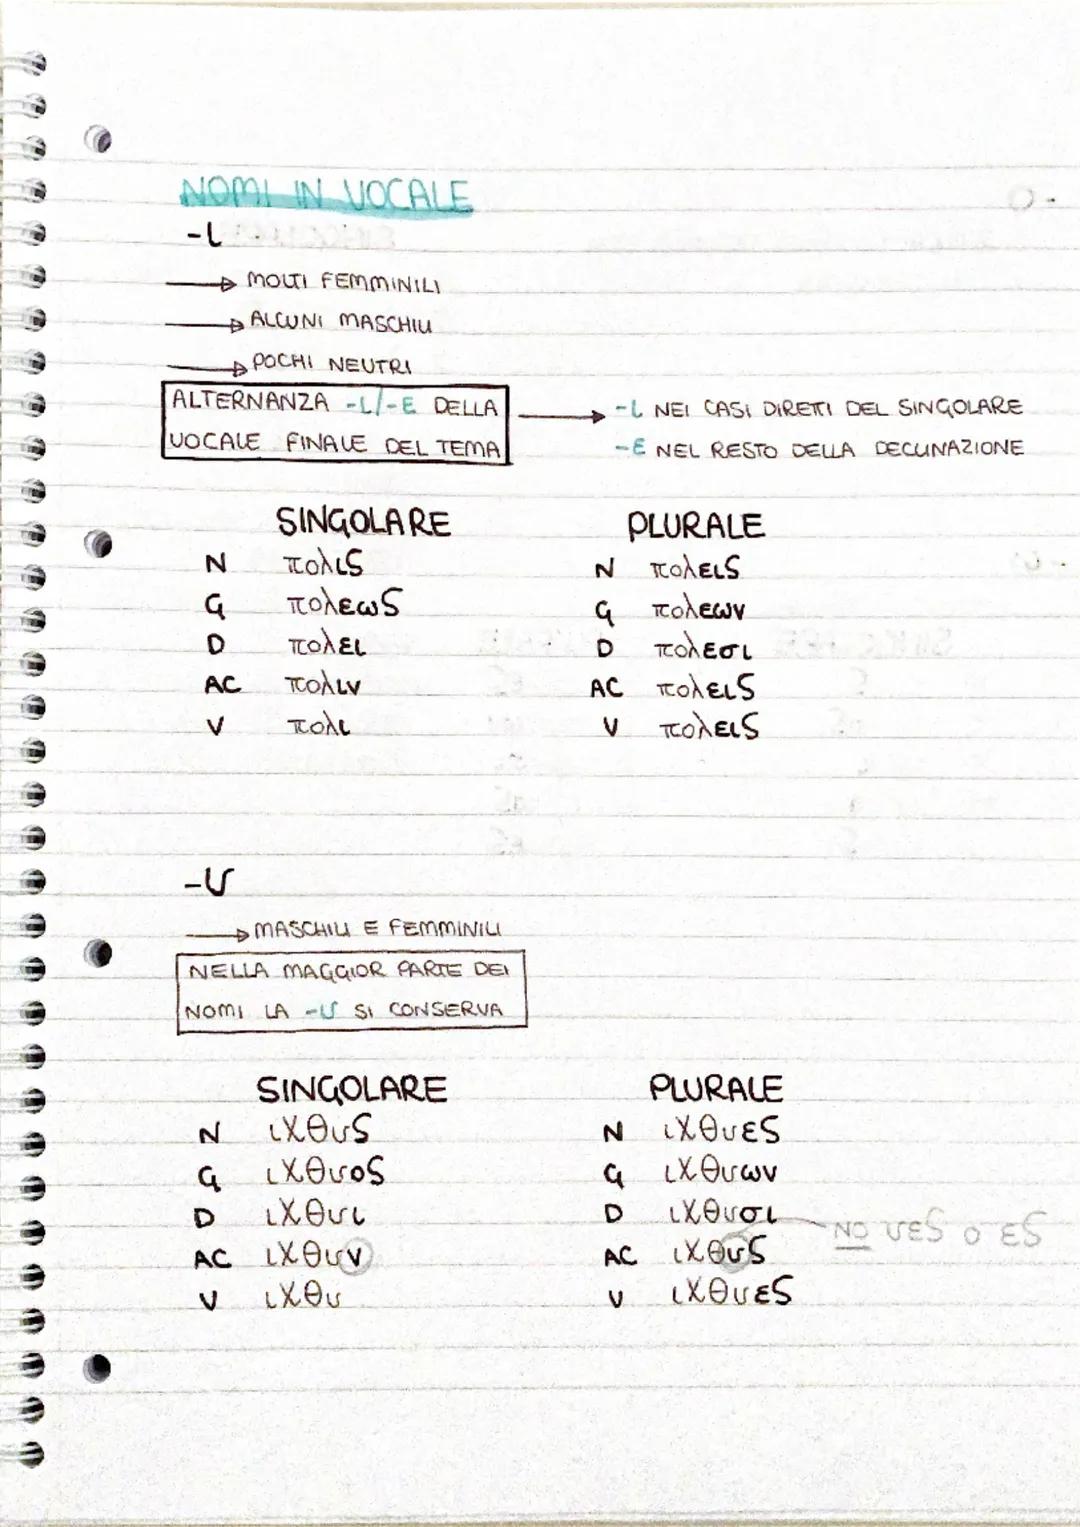 NOMI IN VOCALE
-ι
→ MOLTI FEMMINILI
→ ALCUNI MASCHILI
→ POCHI NEUTRI
ALTERNANZA -ι/-ε DELLA → -ι NEI CASI DIRETTI DEL SINGOLARE
VOCALE FINALE DEL TEMA -ε NEL RESTO DELLA DECLINAZIONE
SINGOLARE PLURALE
N πολις N πολεις
G πολεως G πολεων
D πολει D πολεσι
AC πολιν AC πολεις
V πολι V πολεις
-υ
→ MASCHILI E FEMMINILI
NELLA MAGGIOR PARTE DEI
NOMI LA -υ SI CONSERVA
SINGOLARE PLURALE
N ιχθυς N ιχθυες
G ιχθυος G ιχθυων
D ιχθυι D ιχθυσι NO υες o ες
AC ιχθυν AC ιχθυς
V ιχθυ V ιχθυες